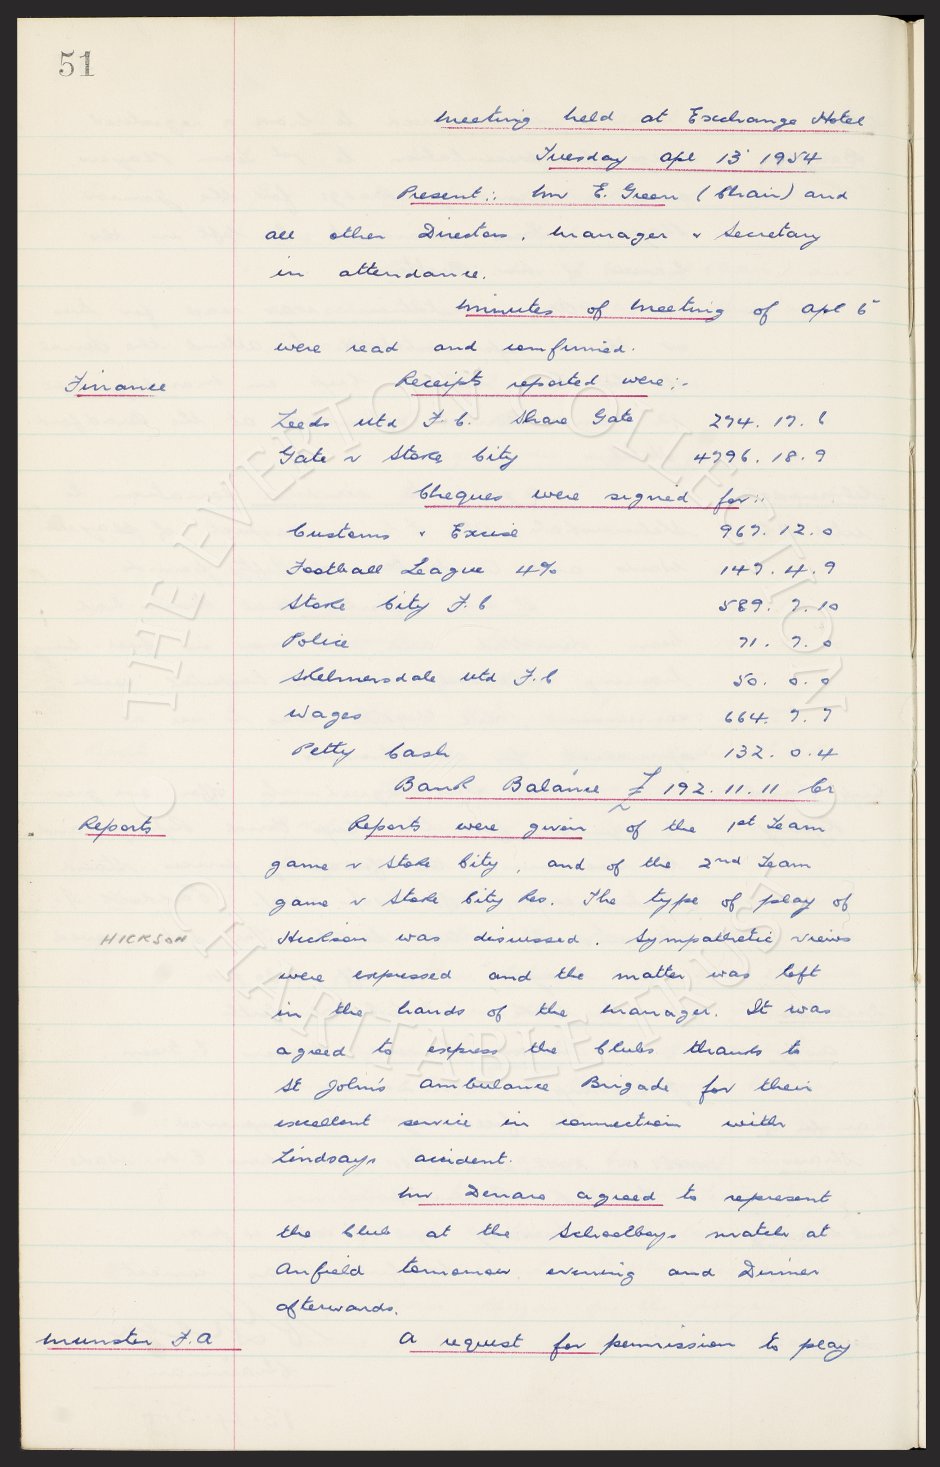 51
Meeting held at Exchange Hotel
Tuesday Apl 13 1954
Present:: Mr E. Green (Chair) and
all other Directors, Manager & Secretary
in attendance.
Minutes of Meeting of Apl 6
were read and confirmed.
Finance
Receipts reported were:-
Leeds Utd F.C. Share Gate 274. 17. 6
Gate v Stoke City 4796. 18. 9
Cheques were signed for::
Customs & Excise 967. 12. 0
Football League 4% 147. 4. 9
Stoke City F.C 589. 7. 10
Police 71. 7. 0
Skelmersdale Utd F.C 50. 0. 0
Wages 664. 7. 7
Petty Cash 132. 0. 4
Bank Balance £192. 11. 11 Cr
Reports
Reports were given of the 1st Team
game v Stoke City, and of the 2nd Team
game v Stoke City Res. The type of play of
HICKSON
Hickson was discussed. Sympathetic views
were expressed and the matter was left
in the hands of the Manager. It was
agreed to express the Clubs thanks to
St John's Ambulance Brigade for their
excellent service in connection with
Lindsays accident.
Mr Denaro agreed to represent
the Club at the Schoolboys match at
Anfield tomorrow evening and Dinner
afterwards.
Munster F.A
A request for permission to play
© THE EVERTON COLLECTION
CHARITABLE TRUST